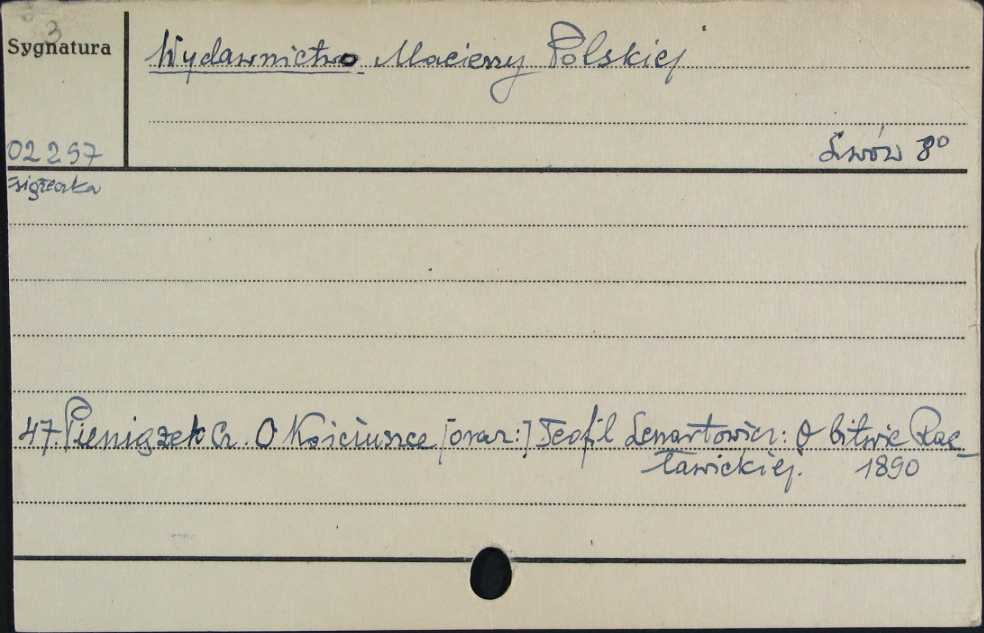 3
Sygnatura
Wydawnictwo Macierzy Polskiej
02297
Lwów 8°
książeczka
47. Pieniążek Cz. O Kościuszce [oraz:] Teofil Lenartowicz: O bitwie Rac-
ławickiej. 1890